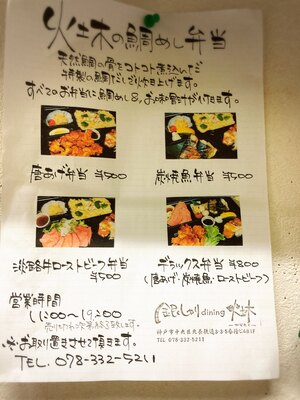 火土木の鯛めし弁当
天然鯛の骨をコトコト煮込んだ
特製の鯛だしで炊き上げます。
すべてのお弁当に鯛めし&お味噌汁が付きます。
唐あげ弁当 ¥400
炭焼魚弁当 ¥400
淡路牛ローストビーフ弁当
¥500
デラックス弁当 ¥800
(唐あげ・炭焼魚・ローストビーフ)
営業時間
11:00〜19:00
売り切れ次第終了致します。
お取り置きさせて頂きます。
TEL. 078-332-5211
dining 火土木
神戸市中央区北長狭通3-3-5
TEL 078-332-5211